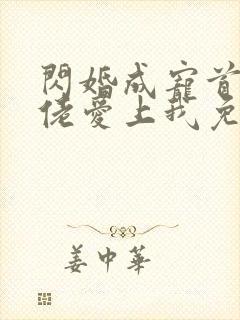 閃婚成寵首
佬愛上我免
姜中華